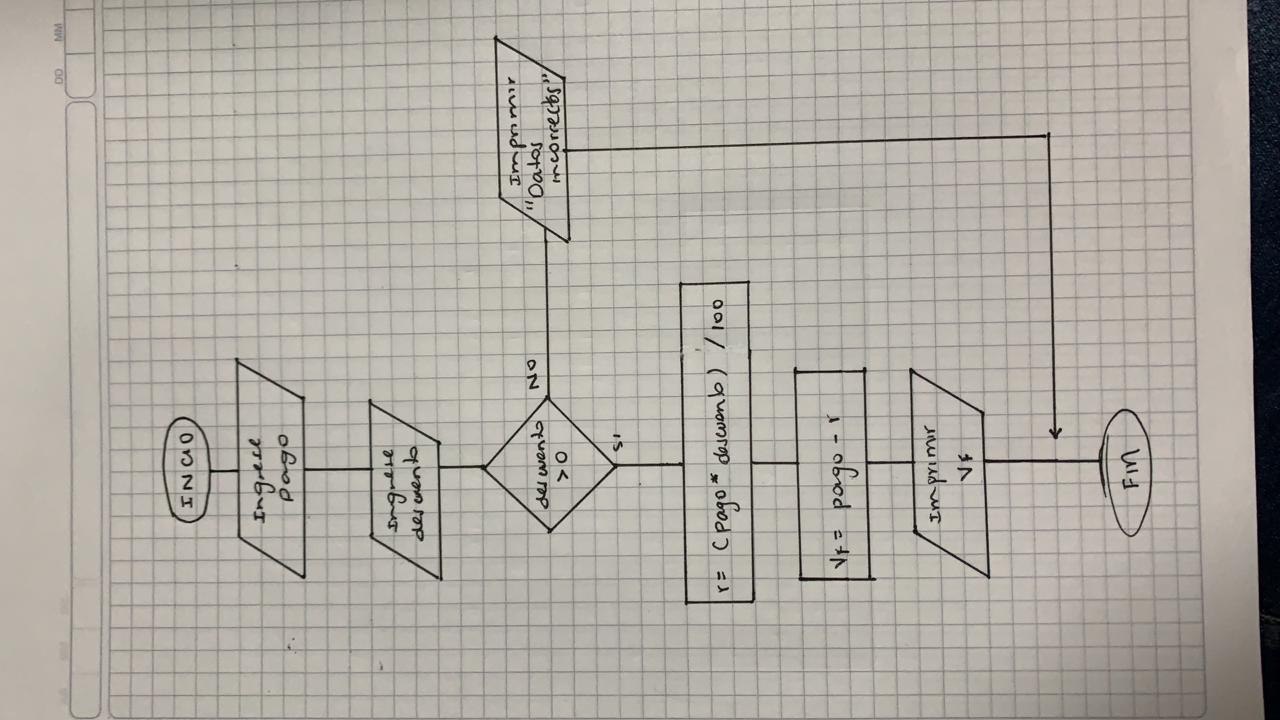 INICIO
Ingrese
pago
Ingrese
descuento
descuento
>0
NO
Si
Imprimir
"Datos
incorrectos"
r= (pago* descuento) /100
Vf= pago-r
Imprimir
Vf
FIN
MM
DD